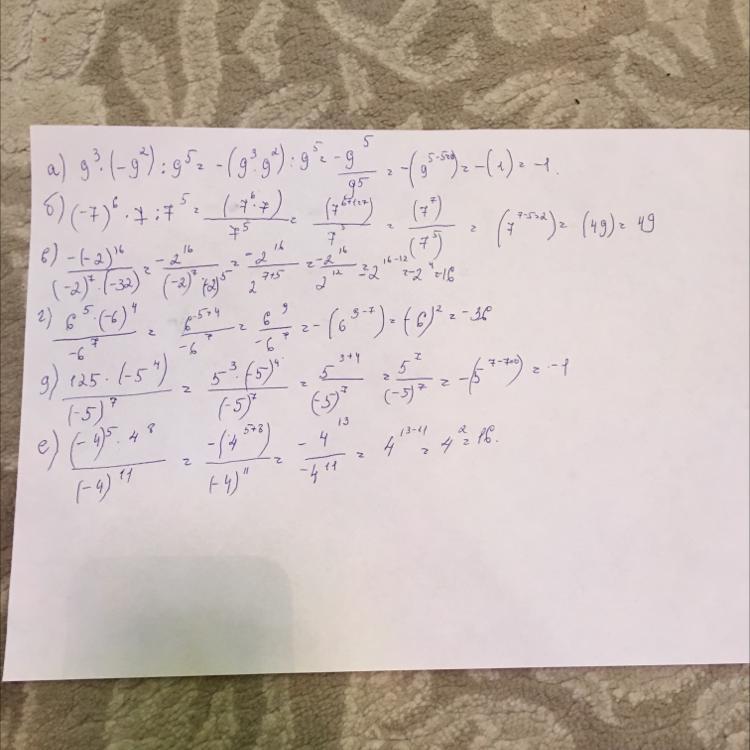 а) 9³·(-9²):9⁵ = -(9³·9²):9⁵ = -9⁵/9⁵ = -(9⁵⁻⁵⁼⁰) = -(1) = -1.
б) (-7)⁶·7:7⁵ = (7⁶·7)/7⁵ = (7⁶⁺¹⁼⁷)/7⁵ = (7⁷)/(7⁵) = (7⁷⁻⁵⁼²) = (49) = 49
в) -(-2)¹⁶/(-2)⁷·(-32) = -2¹⁶/(-2)⁷·(-2)⁵ = -2¹⁶/2⁷⁺⁵ = -2¹⁶/2¹² = -2¹⁶⁻¹² = -2⁴ = -16
г) 6⁵·(-6)⁴/-6⁷ = 6⁵⁺⁴/-6⁷ = 6⁹/-6⁷ = -(6⁹⁻⁷) = (-6)² = -36
д) 125·(-5⁴)/(-5)⁷ = 5³·(-5)⁴/(-5)⁷ = 5³⁺⁴/(-5)⁷ = 5⁷/(-5)⁷ = -(5⁷⁻⁷⁼⁰) = -1
е) (-4)⁵·4⁸/(-4)¹¹ = -(4⁵⁺⁸)/(-4)¹¹ = -4¹³/-4¹¹ = 4¹³⁻¹¹ = 4² = 16.